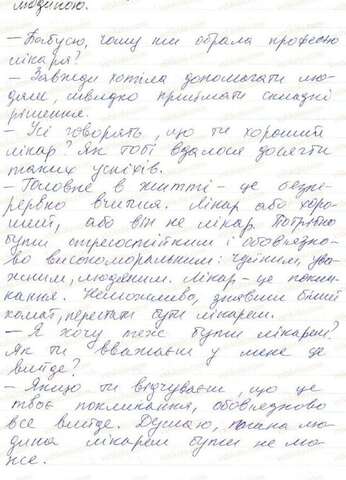 людиною.
— Бабусю, чому ти обрала професію
лікаря?
— Завжди хотіла допомагати лю-
дям, швидко приймати складні
рішення.
— Усі говорять, що ти хороший
лікар? Як тобі вдалося досягти
таких успіхів.
— Головне в житті – це безпе-
рервно вчитися. Лікар або хоро-
ший, або він не лікар. Потрібно
бути стресостійким і обов'язко-
во високоморальним: чуйним, ува-
жним, людяним. Лікар – це покли-
кання. Неможливо, знявши білий
халат, перестати бути лікарем.
— Я хочу теж бути лікарем?
Як ти вважаєш у мене це
вийде?
— Якщо ти відчуваєш, що це
твоє покликання, обов'язково
все вийде. Думаю, погана лю-
дина лікарем бути не мо-
же.